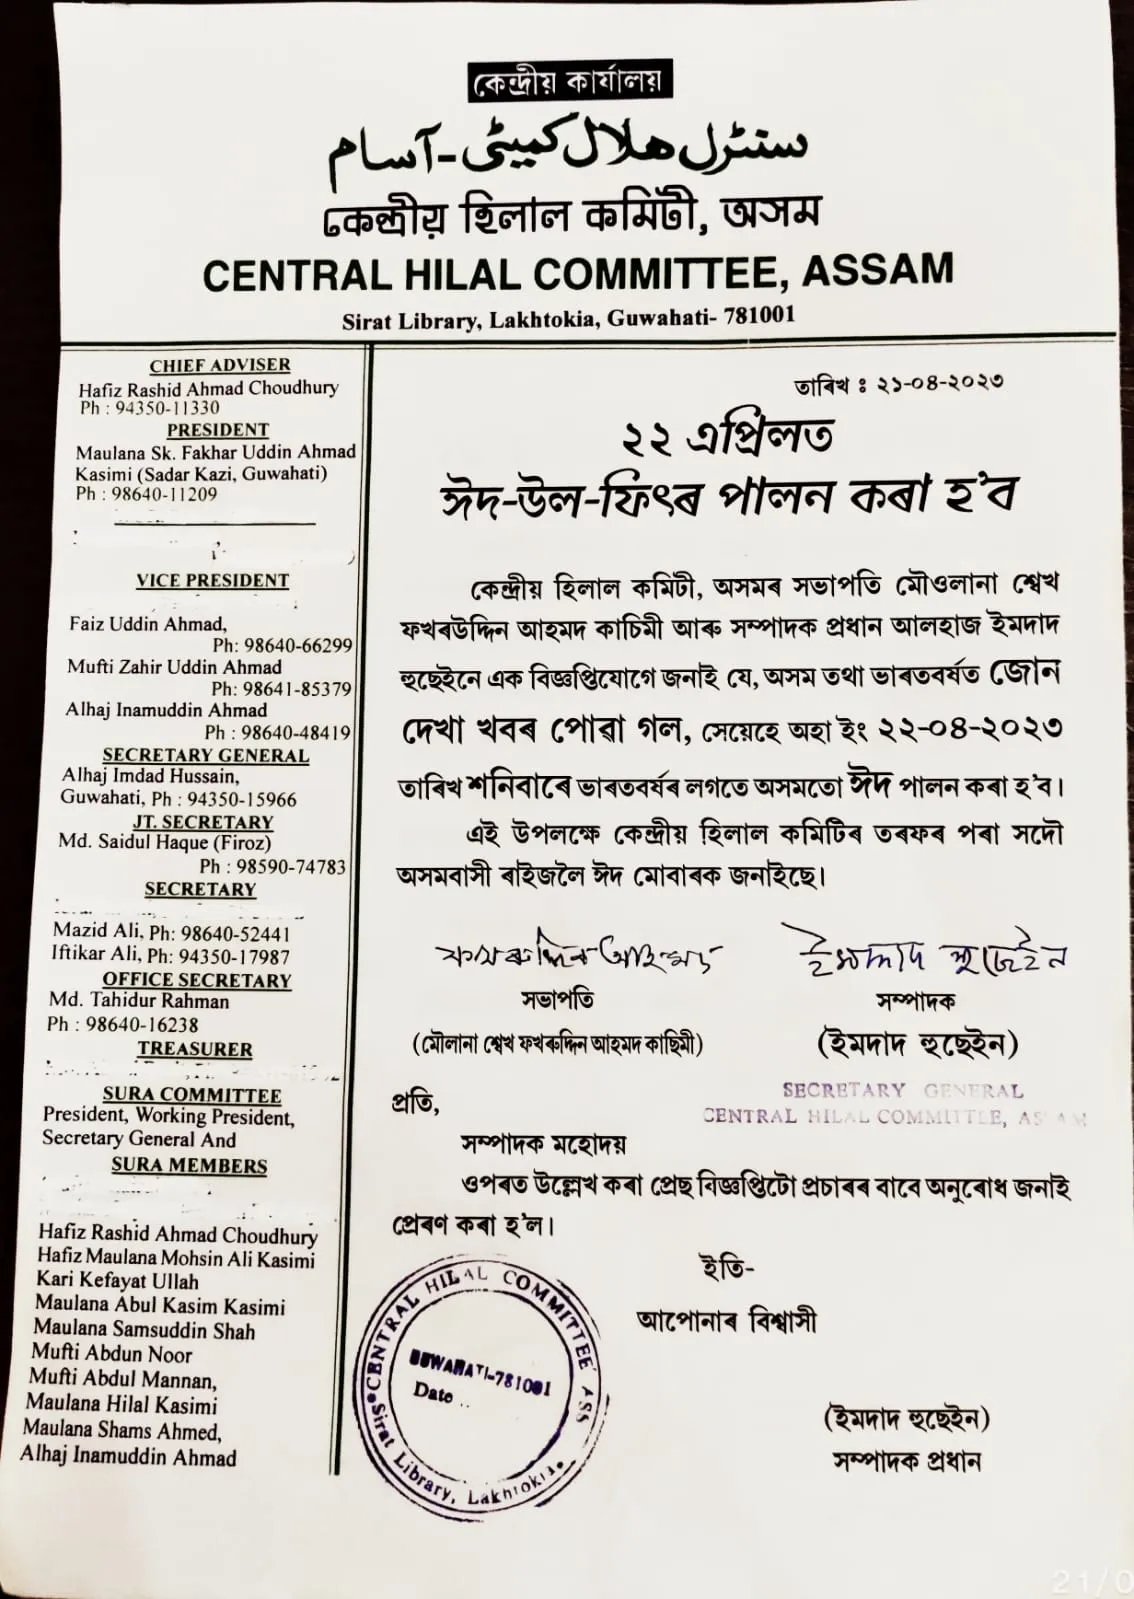 কেন্দ্ৰীয় কাৰ্যালয়
سنٹرل هلال کمیٹی-آسام
কেন্দ্ৰীয় হিলাল কমিটী, অসম
CENTRAL HILAL COMMITTEE, ASSAM
Sirat Library, Lakhtokia, Guwahati- 781001
CHIEF ADVISER
Hafiz Rashid Ahmad Choudhury
Ph : 94350-11330
PRESIDENT
Maulana Sk. Fakhar Uddin Ahmad
Kasimi (Sadar Kazi, Guwahati)
Ph : 98640-11209
VICE PRESIDENT
Faiz Uddin Ahmad,
Ph: 98640-66299
Mufti Zahir Uddin Ahmad
Ph: 98641-85379
Alhaj Inamuddin Ahmad
Ph : 98640-48419
SECRETARY GENERAL
Alhaj Imdad Hussain,
Guwahati, Ph : 94350-15966
JT. SECRETARY
Md. Saidul Haque (Firoz)
Ph : 98590-74783
SECRETARY
Mazid Ali, Ph: 98640-52441
Iftikar Ali, Ph: 94350-17987
OFFICE SECRETARY
Md. Tahidur Rahman
Ph : 98640-16238
TREASURER
SURA COMMITTEE
President, Working President,
Secretary General And
SURA MEMBERS
Hafiz Rashid Ahmad Choudhury
Hafiz Maulana Mohsin Ali Kasimi
Kari Kefayat Ullah
Maulana Abul Kasim Kasimi
Maulana Samsuddin Shah
Mufti Abdun Noor
Mufti Abdul Mannan,
Maulana Hilal Kasimi
Maulana Shams Ahmed,
Alhaj Inamuddin Ahmad
তাৰিখ ঃ ২১-০৪-২০২৩
২২ এপ্ৰিলত
ঈদ-উল-ফিৎৰ পালন কৰা হ'ব
কেন্দ্ৰীয় হিলাল কমিটী, অসমৰ সভাপতি মৌওলানা শ্বেখ
ফখৰউদ্দিন আহমদ কাচিমী আৰু সম্পাদক প্ৰধান আলহাজ ইমদাদ
হুছেইনে এক বিজ্ঞপ্তিযোগে জনাই যে, অসম তথা ভাৰতবৰ্ষত জোন
দেখা খবৰ পোৱা গল, সেয়েহে অহা ইং ২২-০৪-২০২৩
তাৰিখ শনিবাৰে ভাৰতবৰ্ষৰ লগতে অসমতো ঈদ পালন কৰা হ'ব।
এই উপলক্ষে কেন্দ্ৰীয় হিলাল কমিটিৰ তৰফৰ পৰা সদৌ
অসমবাসী ৰাইজলৈ ঈদ মোবাৰক জনাইছে।
ফখৰুদ্দিন আহমদ
ইমদাদ হুছেইন
সভাপতি
সম্পাদক
(মৌলানা শ্বেখ ফখৰুদ্দিন আহমদ কাছিমী)
(ইমদাদ হুছেইন)
SECRETARY GENERAL
CENTRAL HILAL COMMITTEE, ASSAM
প্ৰতি,
সম্পাদক মহোদয়
ওপৰত উল্লেখ কৰা প্ৰেছ বিজ্ঞপ্তিটো প্ৰচাৰৰ বাবে অনুৰোধ জনাই
প্ৰেৰণ কৰা হ'ল।
ইতি-
আপোনাৰ বিশ্বাসী
CENTRAL HILAL COMMITTEE ASS
GUWAHATI-781001
Date ..
Sirat Library, Lakhtokia.
(ইমদাদ হুছেইন)
সম্পাদক প্ৰধান
21/0